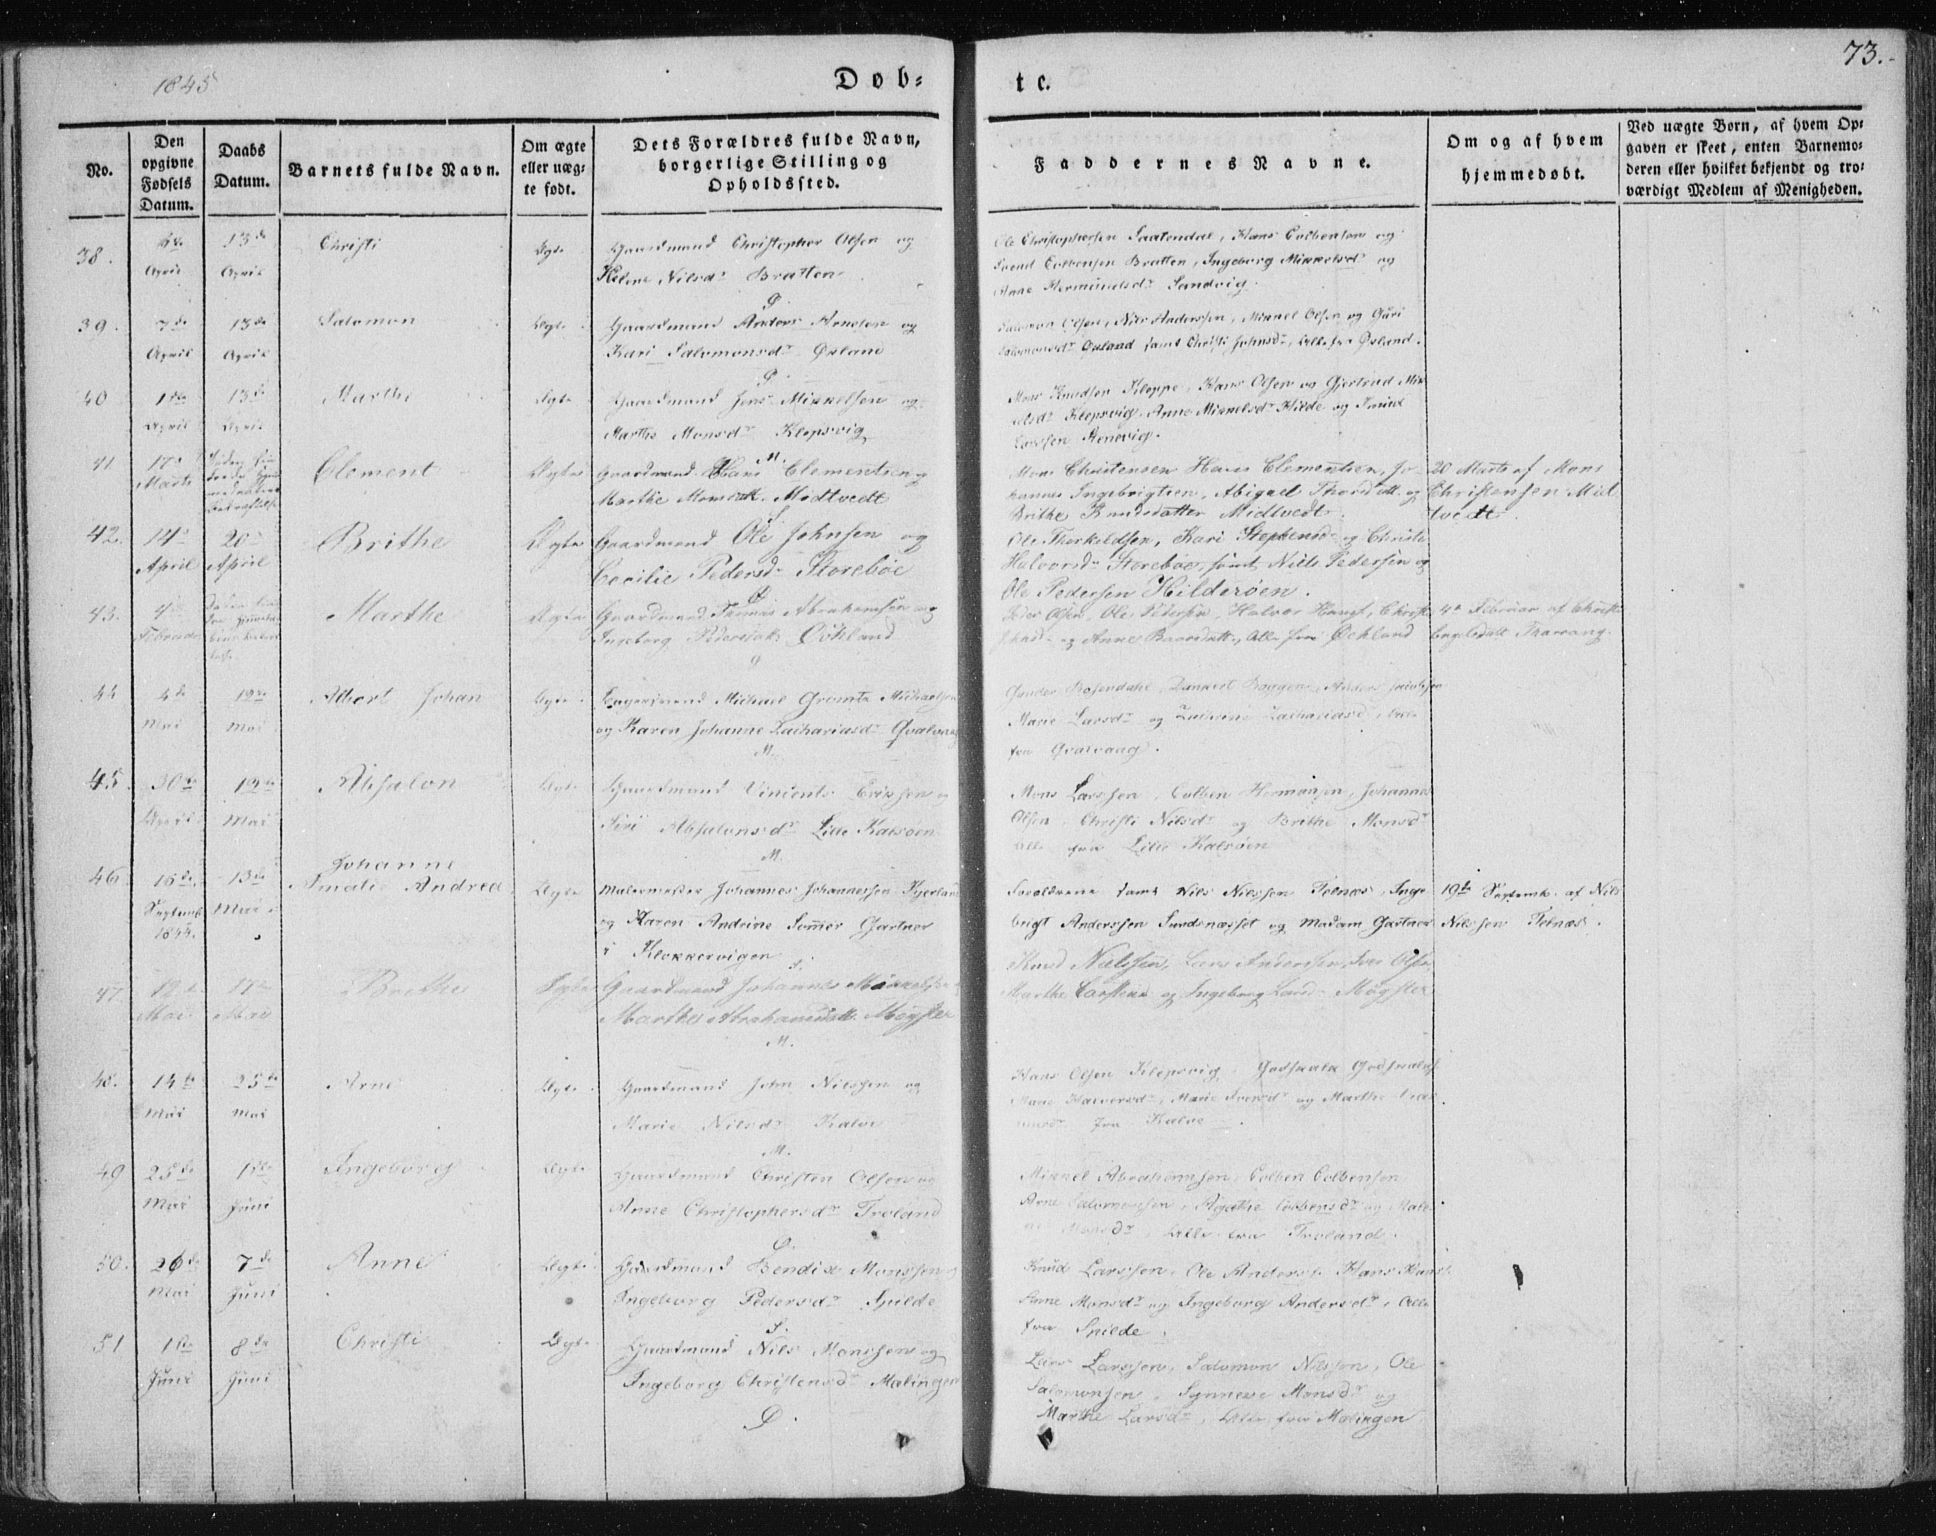 1845
Døb=
te.
73.
No.
Den opgivne Fødsels Datum.
Daabs Datum.
Barnets fulde Navn.
Om ægte eller uægte født.
Dets Forældres fulde Navn, borgerlige Stilling og Opholdssted.
Faddernes Navne.
Om og af hvem hjemmedøbt.
Ved uægte Børn, af hvem Opgaven er skeet, enten Barnemoderen eller hvilket bekjendt og troværdigt Medlem af Menigheden.
38.
April
13de April
Christi
Ægte
Gaardmand Christopher Olsen og
Helene Nilsdr Bratten
Ole Christophersen, Hans Colbensen og
Svend Colbensen Bratten, Ingeborg Mikkelsdr og
Anne Sandvig.
39.
7de April
13de April
Salomon
Ægte
Gaardmand Anders Arnesen og
Kari Salomonsdr Øsland
Salomon Olsen, Nils Andersen, Mikkel Olsen og Guri
Salomonsdr Øsland samt Christi Johnsdr, alle fra Øsland.
40
1ste April
13de April
Marthe
Ægte
Gaardmand Jens Mikkelsen og
Marthe Monsdr Klepsvig
Mons Knudsen Kleppe, Hans Olsen og Gjertrud Mik
elsdr Klepsvig, Anne Mikkelsdr Hilde og Knud
Larssen Stenevig.
41
17de Marts
Clement
Ægte
Gaardmand Hans Clementsen og
Marthe Monsdatt. Midtvedt
Mons Christensen Hans Clementsen, Jo-
hannes Ingebrigtsen, Abigael Thordatt. og
Brithe Knudsdatter Midtvedt.
20 Marts af Mons
Christensen Mid
tvedt
42.
14de April
20de April
Brithe
Ægte
Gaardmand Ole Johnsen og
Cecilie Pedersdr Storebøe
Ole Thorkildsen, Kari Stephensdr og Christi
Halvorsdr Storebøe, samt Niels Pedersen og
Ole Pedersen Hilderøen.
43.
4de Februar
Marthe
Ægte
Gaardmand Abrahamsen og
Ingeborg Pedersdatt. Øchland
Peder Olsen, Ole Pedersen, Halvor Hansen, Christi
og Anne, Alle fra Øchland
4de Februar af Christi
44
4de Mai
12te Mai
Albert Johan
Ægte
Michael Gromtz Michaelsen
og Karen Johanne Zachariasdr Qvalvaag
Rosendahl,
Marie Larsdr og Zachariasdr, alle
fra Qvalvaag.
45.
30te April
12te Mai
Absalon
Ægte
Gaardmand Vincents Erikssen og
Siri Absalonsdr Lille Kalsøen
Mons Larssen, Colben Hermansen, Johannes
Olsen, Christi Nilsdr og Brithe Monsdr
alle fra Lille Kalsøen
46
16de Septemb. 1844.
13de Mai
Johanne
Amalie Andrea
Ægte
Malermester Johannes Johannessen Kjerland
og Karen Andrine Sømer Gartner
i Klokkervigen
Forældrene samt Nils Nilssen Folnæs, Inge
brigt Anderssen Sundsnæsset og Madam Gartner
19de Septemb. af Nils
Nilssen Folnæs.
47
12te Mai
17de Mai
Brithe
Ægte
Gaardmand Johannes Mikkelsen
Marthe Abrahamsdatt. Møgster
Knud Nielssen, Lars Andersen, Iver Olsen,
Marthe og Ingeborg Larsdr Møgster
48.
14de Mai
25de Mai
Arne
Ægte
Gaardmand John Nilssen og
Marie Nilsdr Kalve
Hans Olsen Klepsvig, Godskalk Godskalks.
Halvorsdr, Marie Iversdr og Marthe
fra Kalve
49
25de Mai
1ste Juni
Ingeborg
Ægte
Gaardmand Christen Olsen og
Anne Christophersdr Troland
Mikkel Abrahamsen, Colben Colbensen
Arne Salomonsen, Agathe Colbensdr og Male
ne Monsdr, alle fra Troland.
50.
26de Mai
7de Juni
Anne
Ægte
Gaardmand Bendix Monssen
Ingeborg Pedersdr Spilde
Knud Larssen, Ole Anderss. Hans Hanss.
Anne Monsdr og Ingeborg Andersdr, alle
fra Spilde.
51
1ste Juni
8de Juni
Christi
Ægte
Gaardmand Nils Monssen og
Ingeborg Christensdr Malingen
Lars Larssen, Salomon Nilssen, Ole
Salomonsen, Synneve Monsdr og
Marthe Larsdr, alle fra Malingen